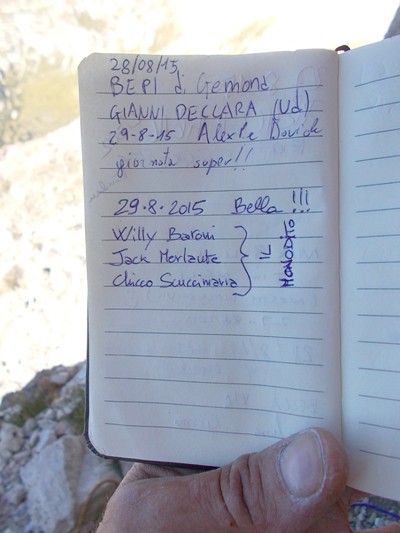 28/08/15
BEPI di Gemona
GIANNI DECLARA (Ud)
29-8-15 Alex e Davide
giornata super!!
29.8.2015 Bella!!!
Willy Baroni
Jack Morlaute
Chicco Scuccimarra
IL
MONODITO